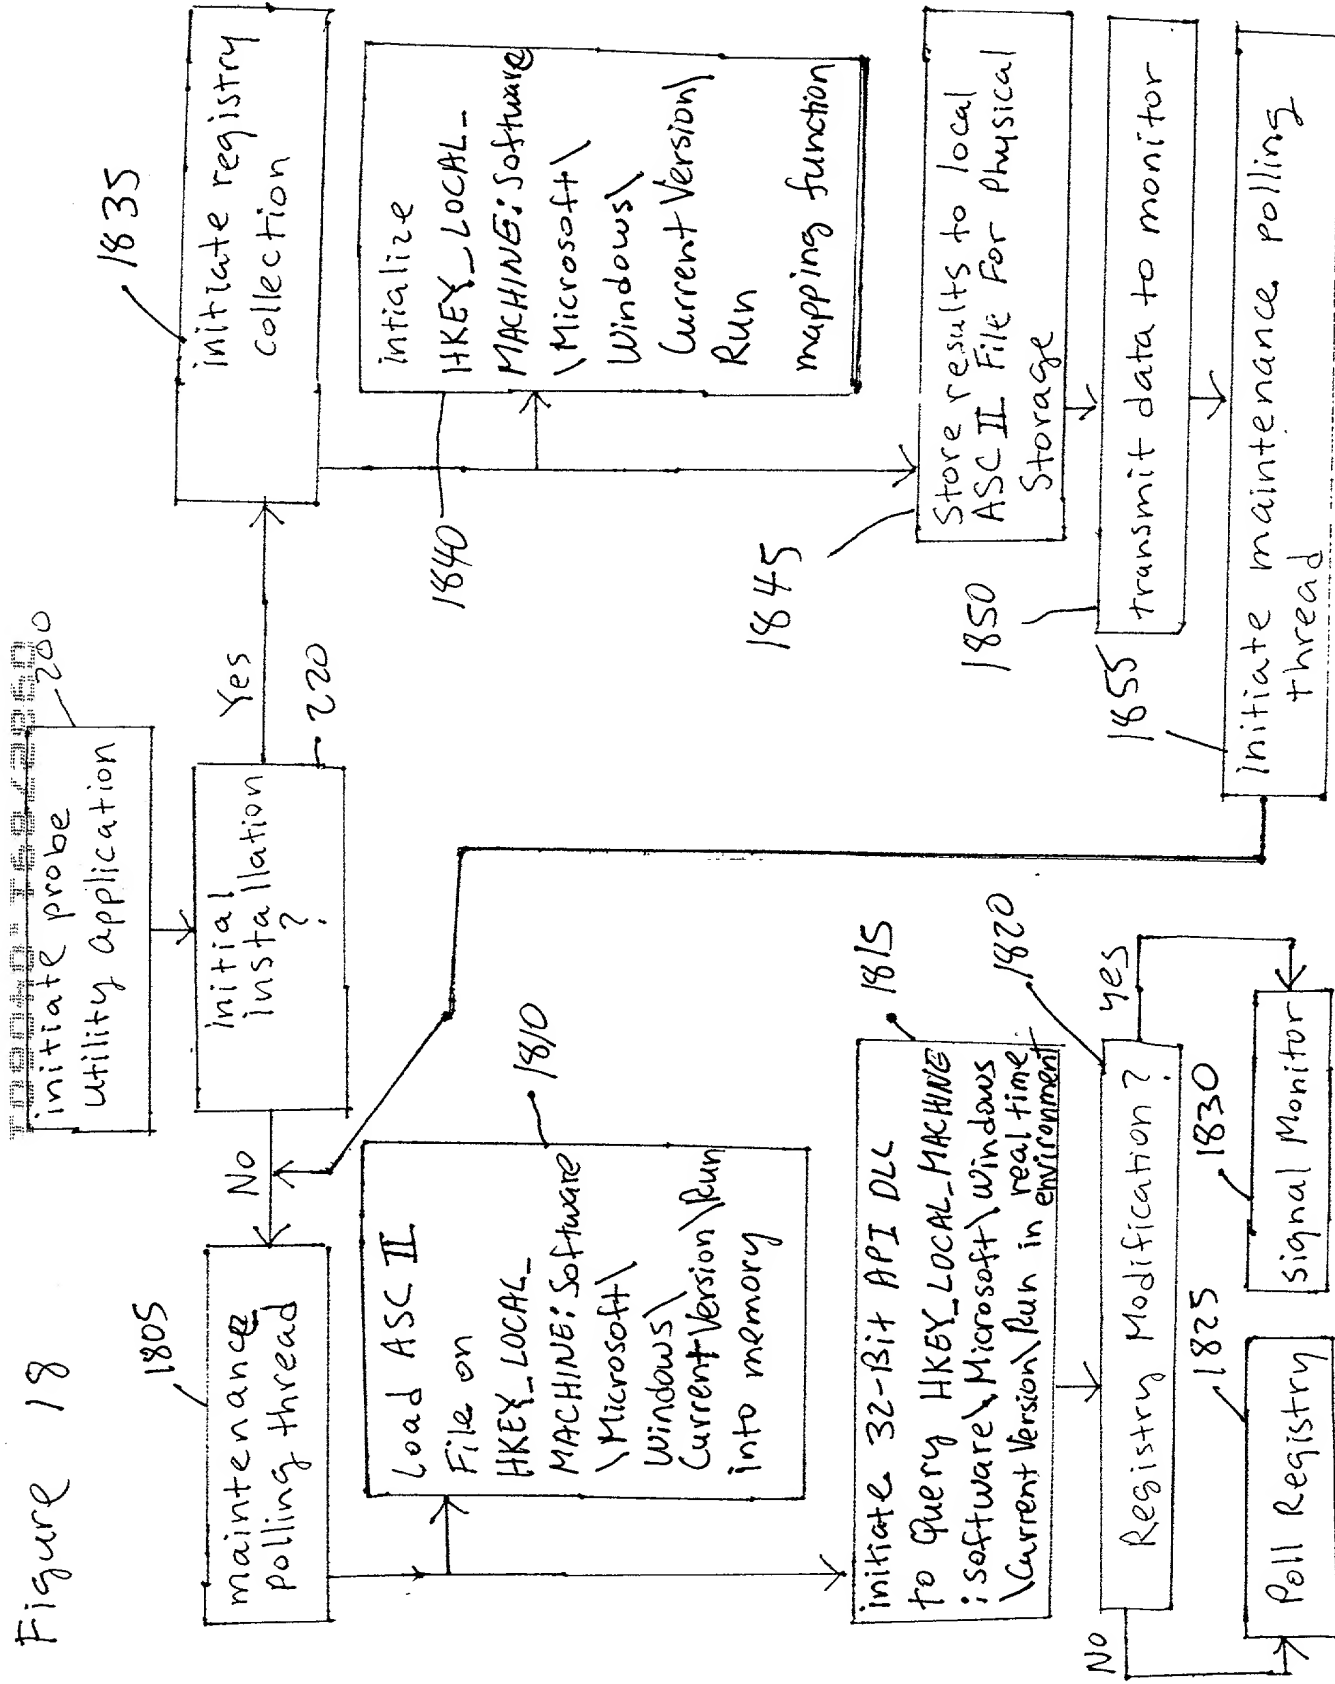 Figure 18
initiate probe
utility application
200
initial
installation
?
220
Yes
No
1805
maintenance
polling thread
Load ASC II
File on
HKEY_LOCAL_
MACHINE:Software
\Microsoft\
Windows\
CurrentVersion\Run
into memory
1810
initiate 32-Bit API DLL
to Query HKEY_LOCAL_MACHINE
:software\Microsoft\Windows
\Current Version\Run in real time
environment
1815
Registry Modification?
1820
No
yes
1825
Poll Registry
1830
signal Monitor
1835
initiate registry
collection
intialize
HKEY_LOCAL_
MACHINE:Software
\Microsoft\
Windows\
Current Version\
Run
mapping function
1840
Store results to local
ASC II File For Physical
Storage
1845
transmit data to monitor
1850
initiate maintenance polling
thread
1855